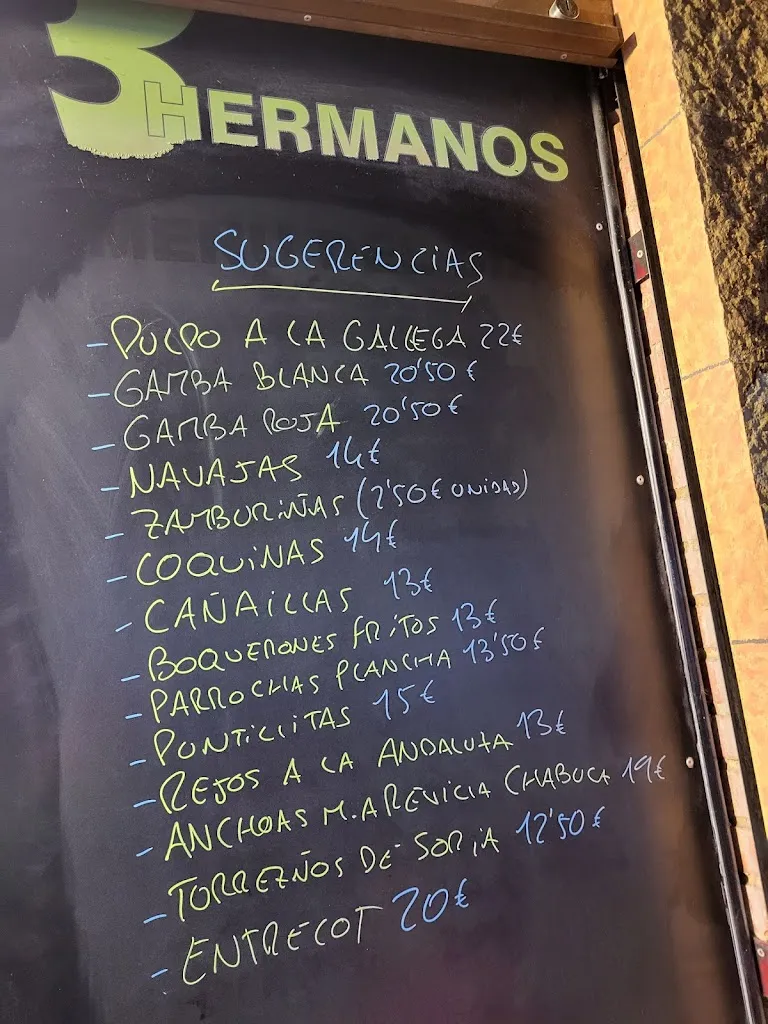 3 HERMANOS
SUGERENCIAS
- PULPO A LA GALLEGA 22€
- GAMBA BLANCA 20'50 €
- GAMBA ROJA 20'50 €
- NAVAJAS 14€
- ZAMBURIÑAS (2'50€ UNIDAD)
- COQUINAS 14€
- CAÑAILLAS 13€
- BOQUERONES FRITOS 13€
- PARROCHAS PLANCHA 13'50€
- PUNTILLITAS 15€
- REJOS A LA ANDALUZA 13€
- ANCHOAS M.AREVICIA CHABUCA 19€
- TORREZÑOS DE SORIA 12'50€
- ENTRECOT 20€